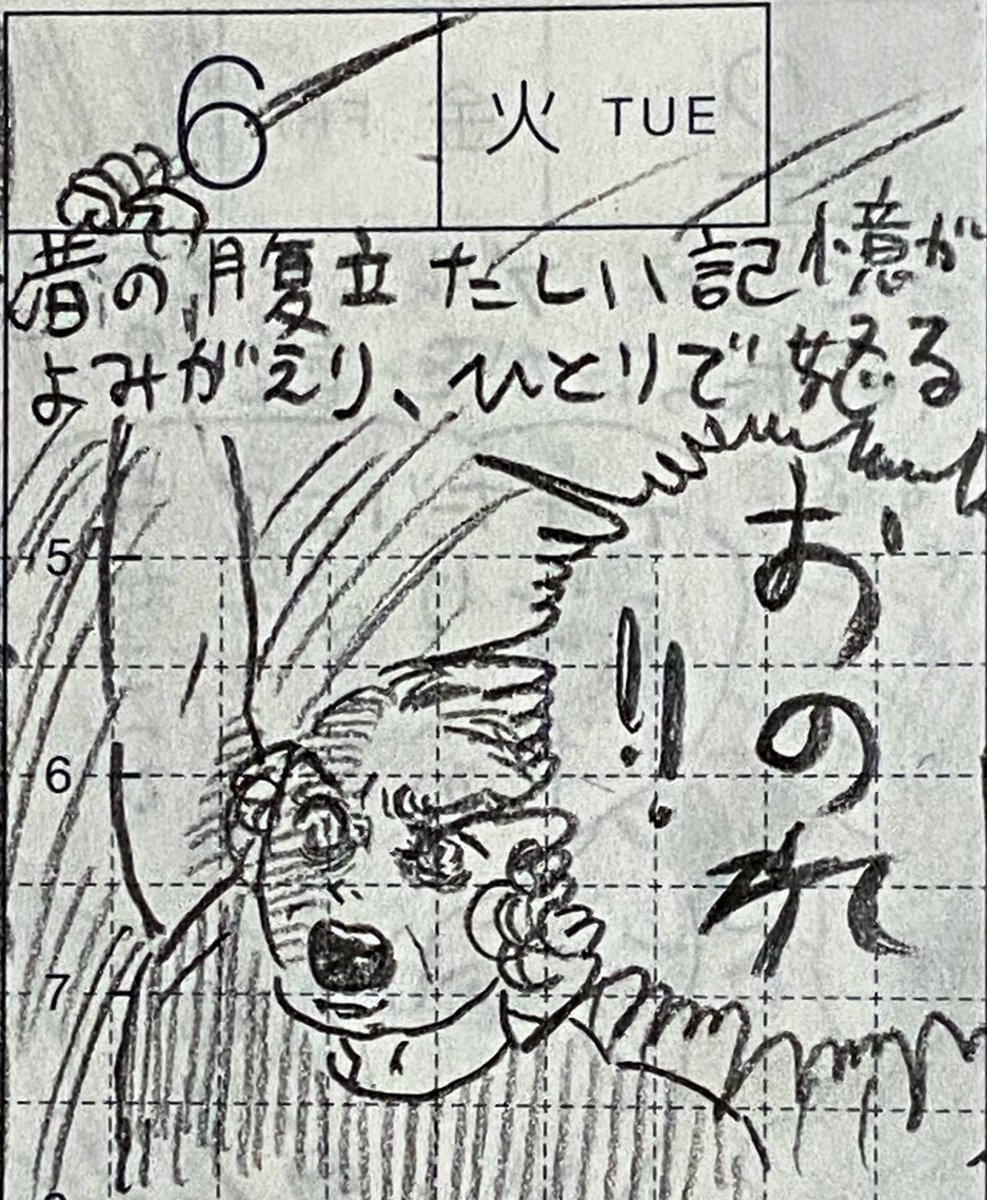 6 火 TUE
昔の腹立たしい記憶が
よみがえり、ひとりで怒る
おのれ
!!
5
6
7